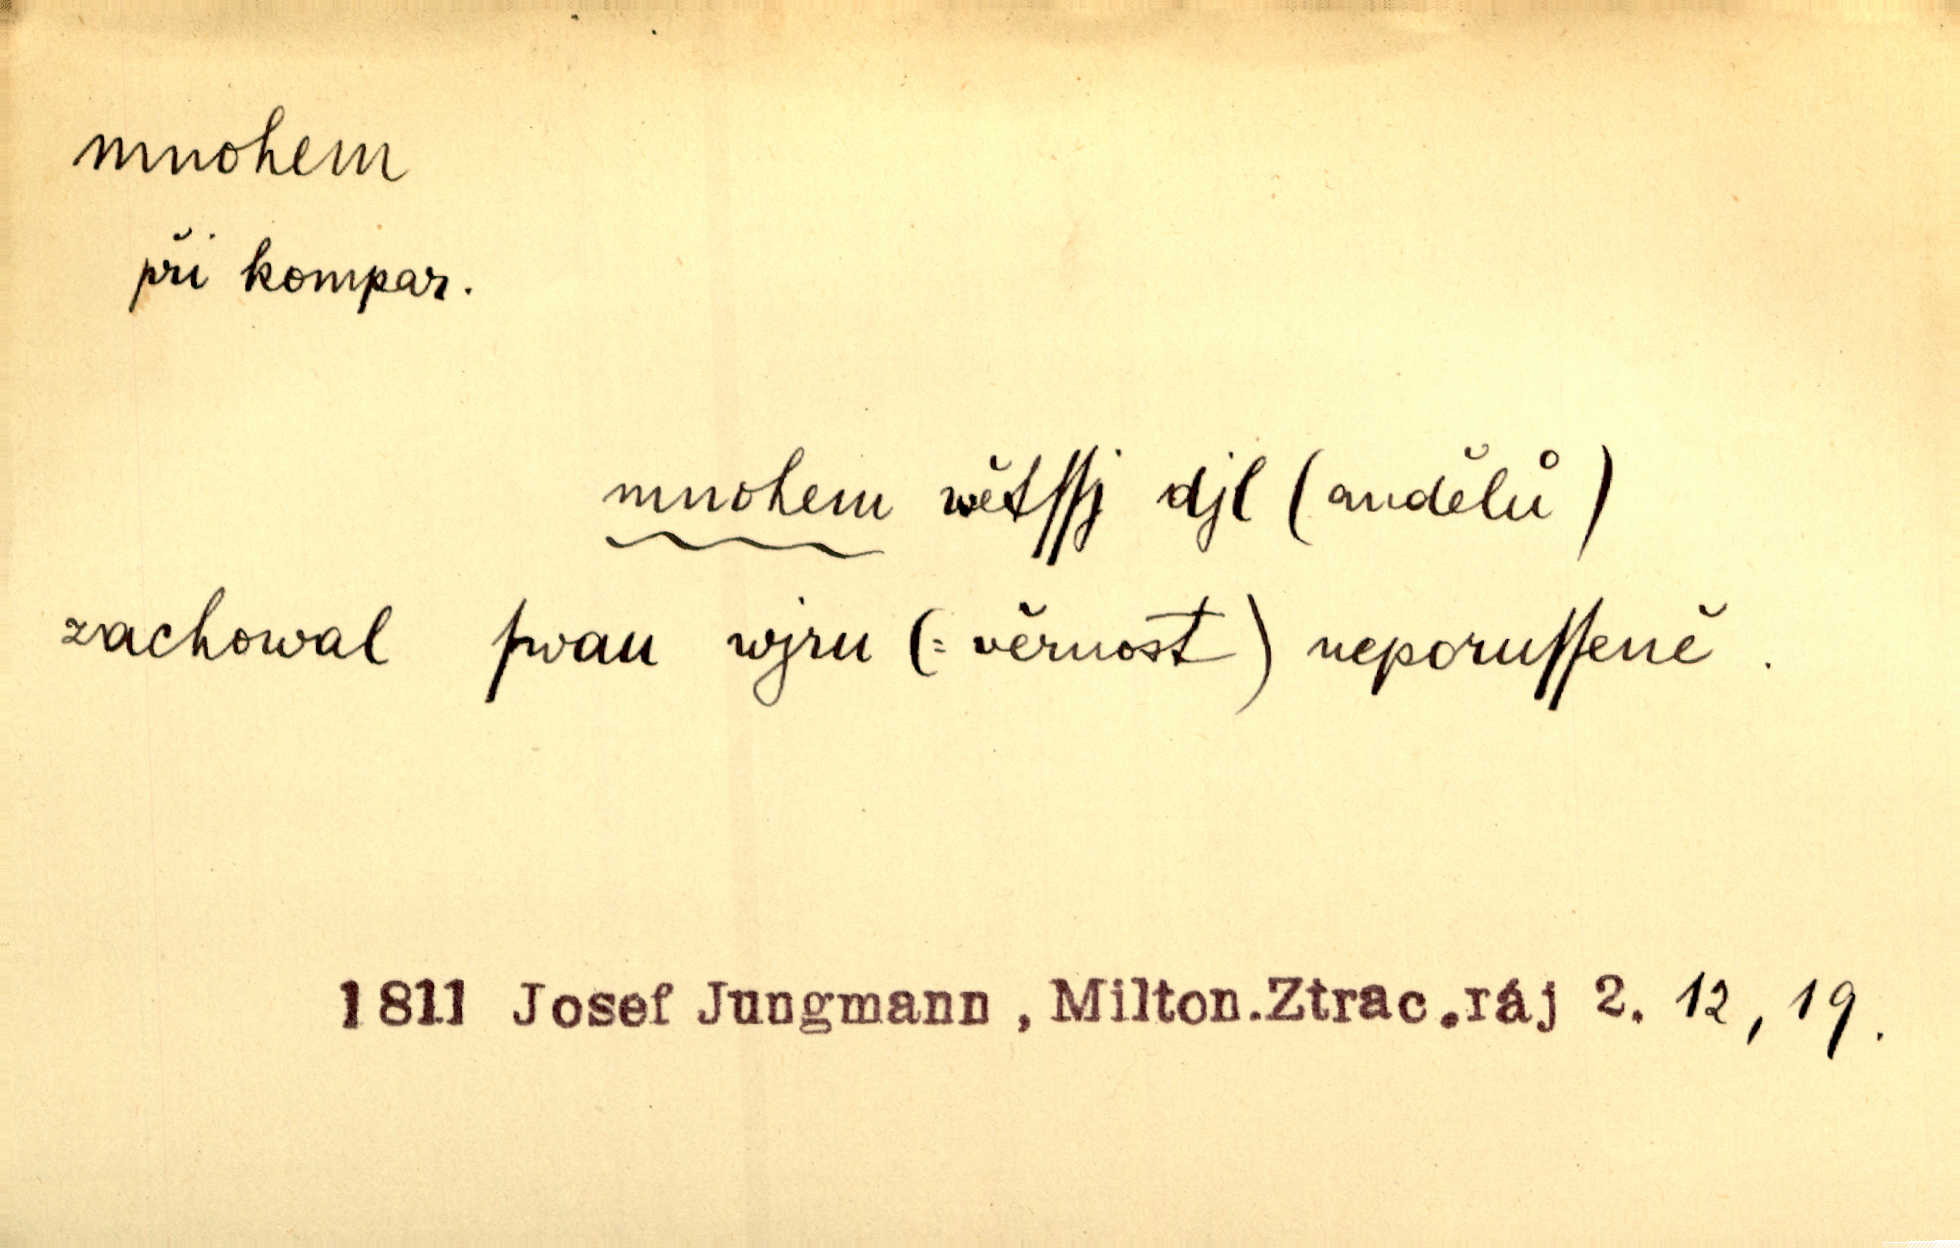 mnohem
při kompar.
mnohem wětſſj djl (andělů)
zachowal ſwau wjru (= věrnost) neporuſſeně.
1811 Josef Jungmann, Milton.Ztrac.ráj 2. 12, 19.